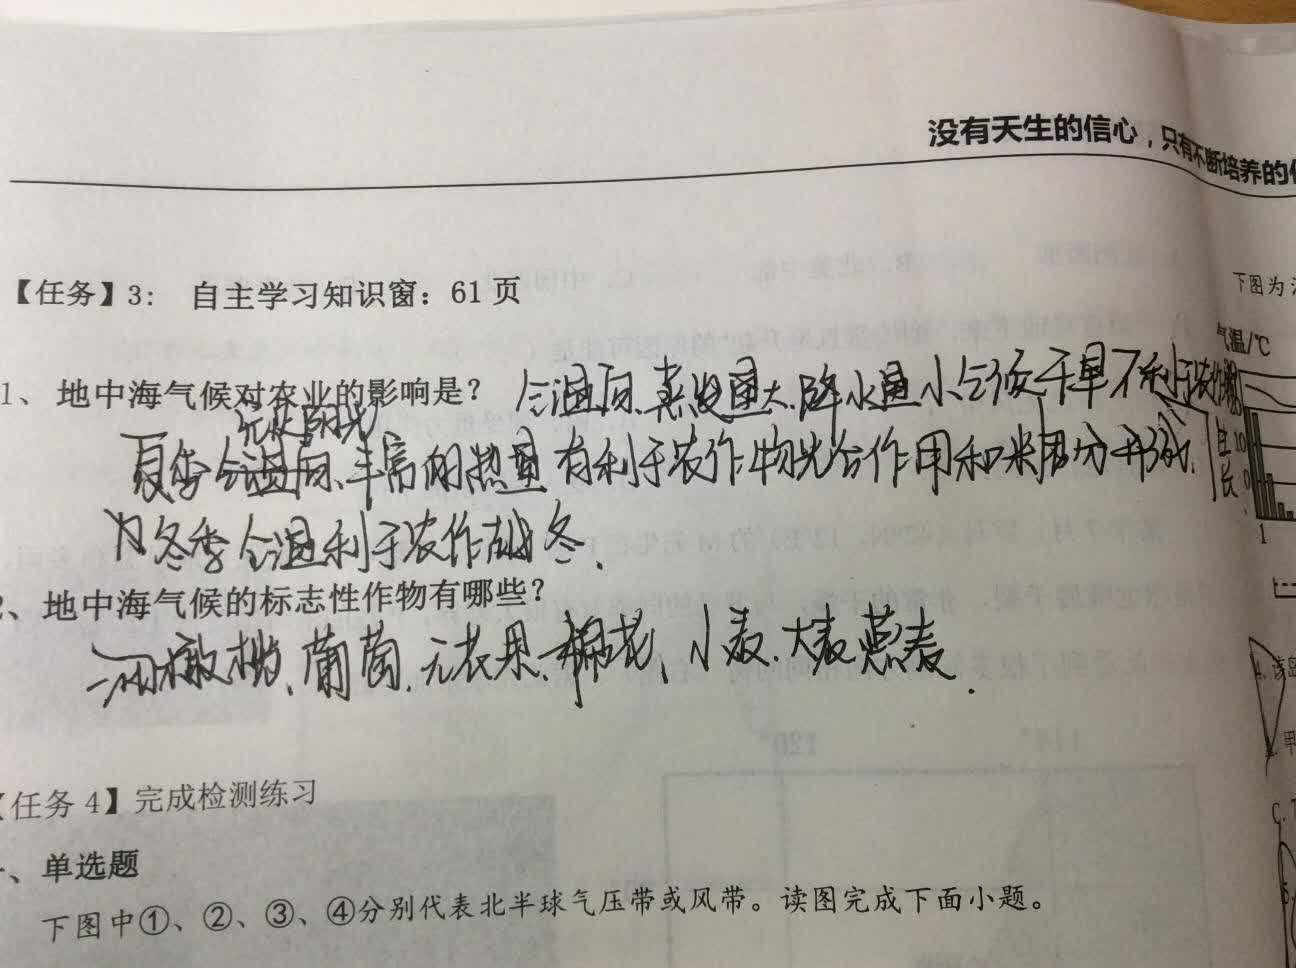 没有天生的信心，只有不断培养的
【任务】3： 自主学习知识窗：61页
下图为
气温/℃
1、地中海气候对农业的影响是？ 气温高、蒸发量大、降水量小气候干旱不利于农作物
生长
充足阳光
夏季气温高、丰富的热量有利于农作物光合作用和 分 、
冬季气温利于农作物越冬、
、地中海气候的标志性作物有哪些？
油橄榄、葡萄、无花果、棉花、小麦、大麦燕麦、
【任务 4】完成检测练习
、单选题
下图中①、②、③、④分别代表北半球气压带或风带。读图完成下面小题。
10
0
1